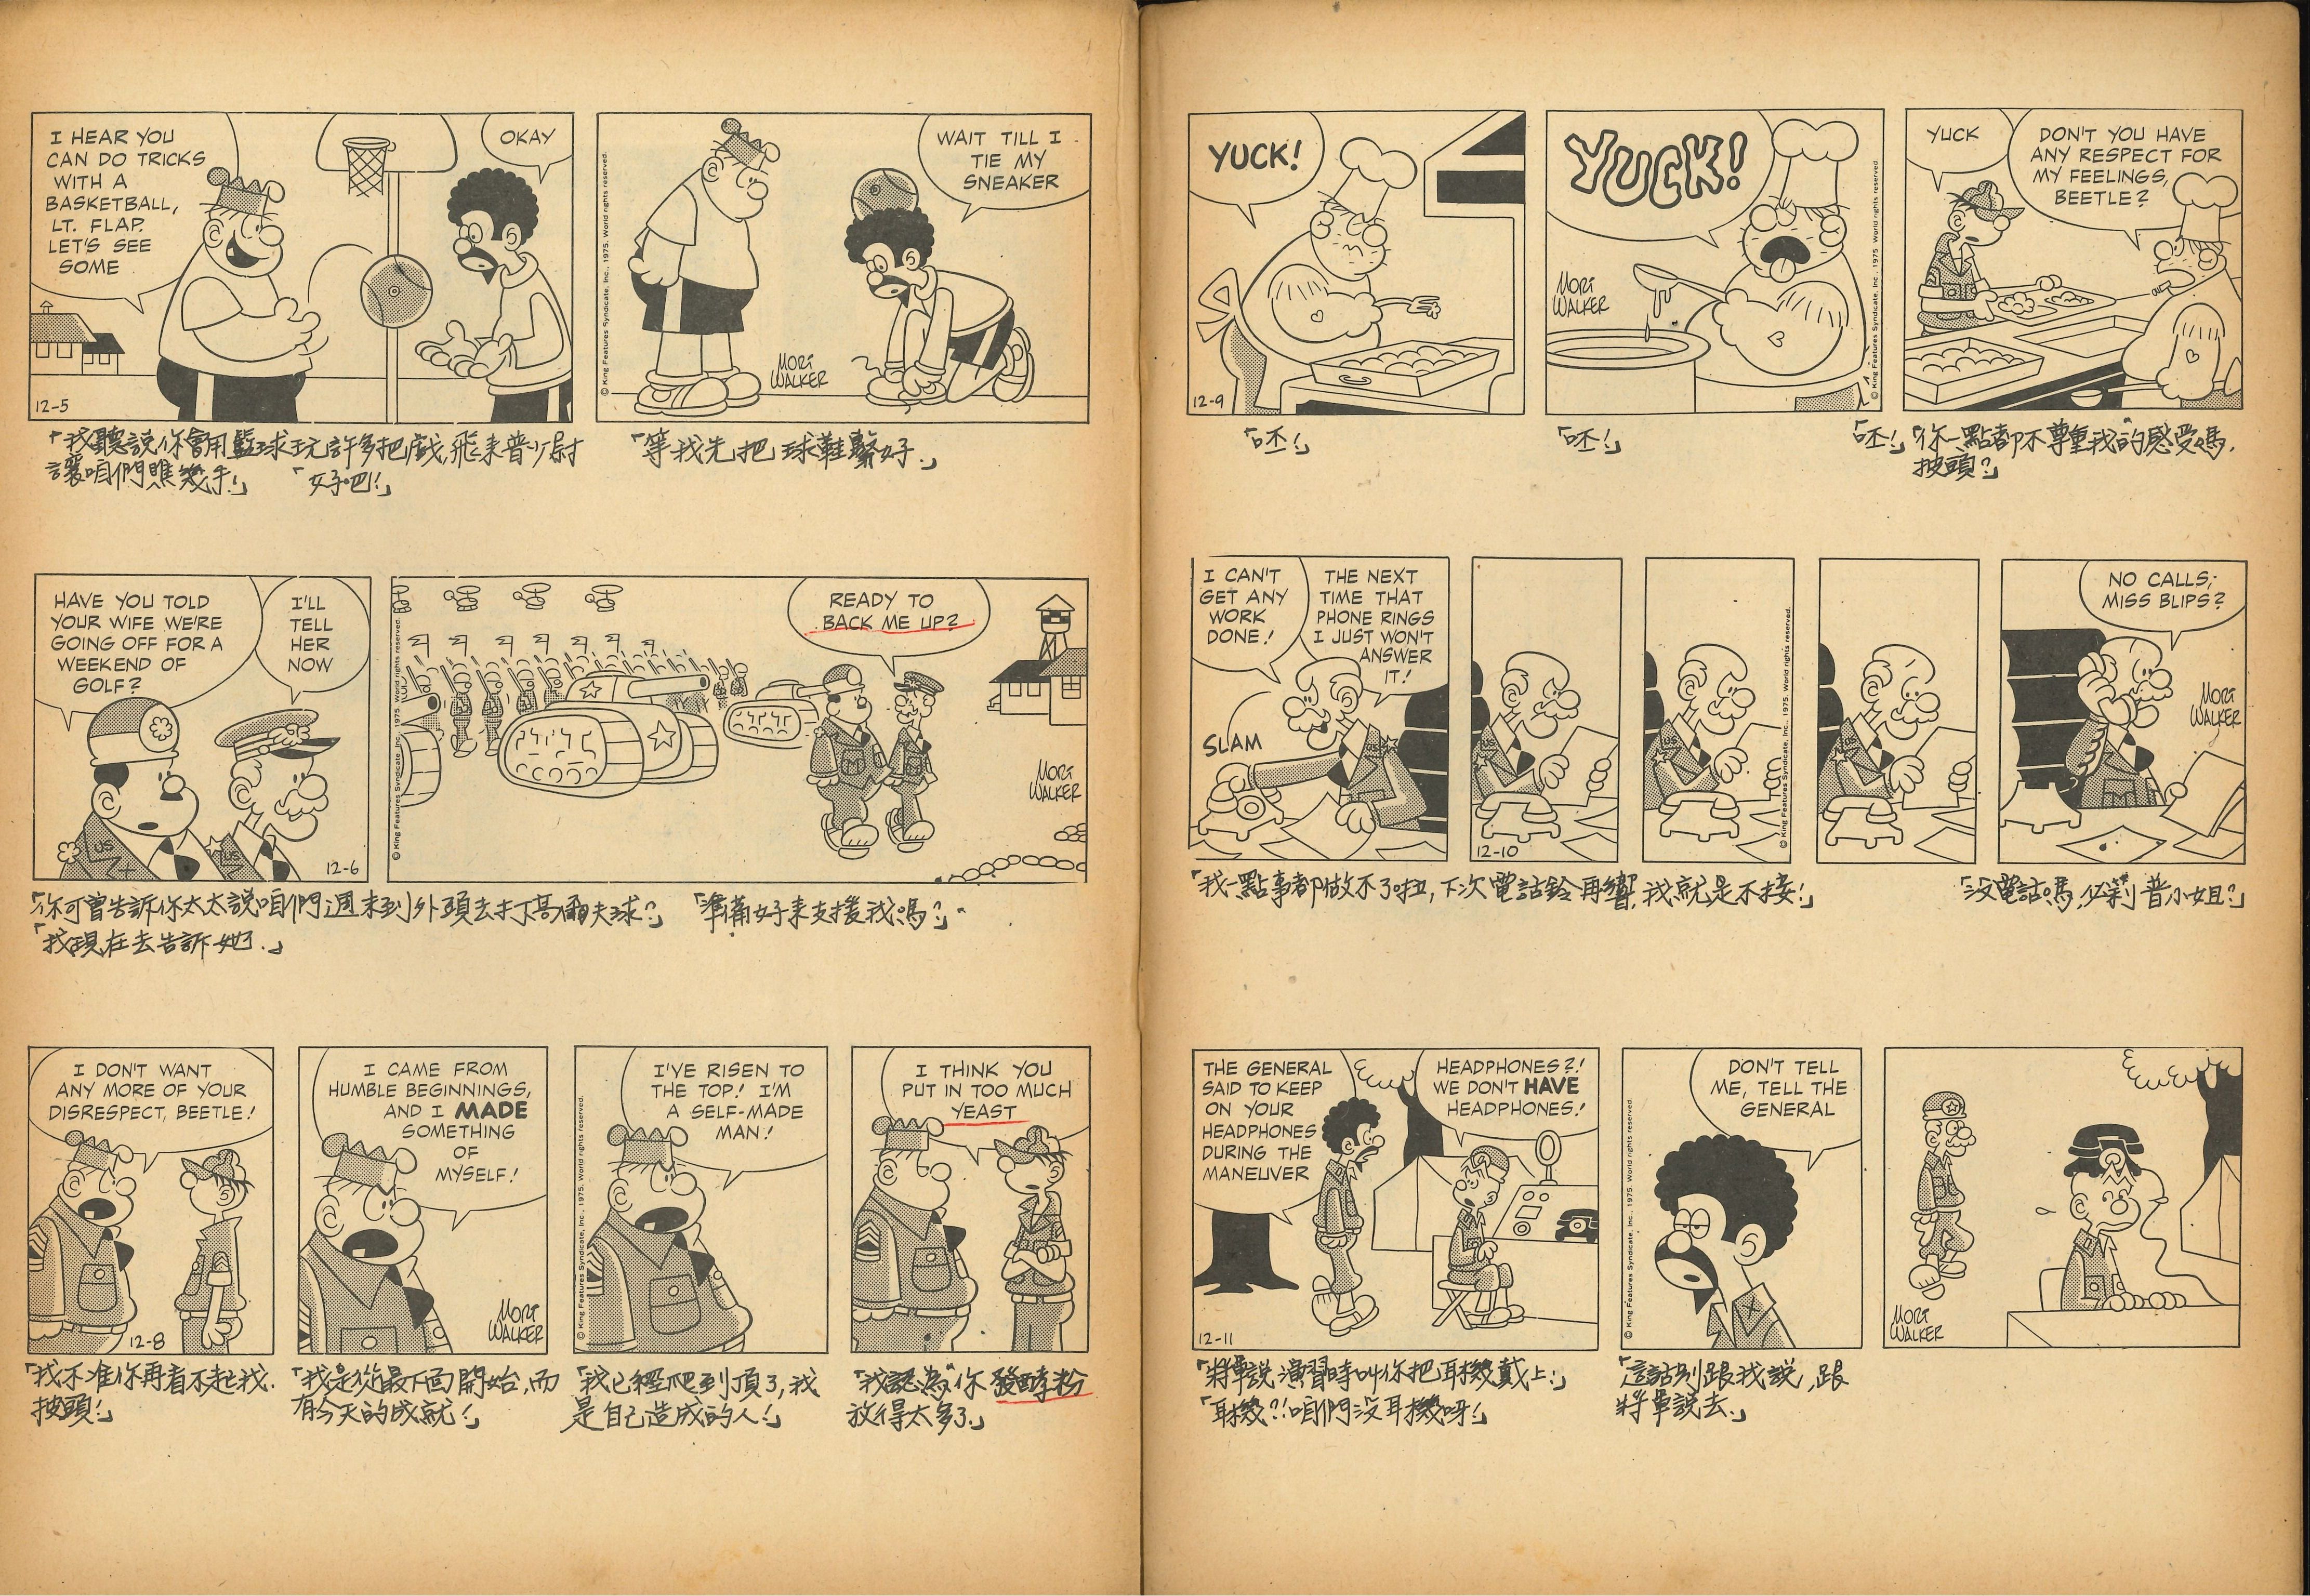 I HEAR YOU
CAN DO TRICKS
WITH A
BASKETBALL,
LT. FLAP.
LET'S SEE
SOME
OKAY
12-5
© King Features Syndicate, Inc., 1975. World rights reserved.
WAIT TILL I
TIE MY
SNEAKER
MORT
WALKER
「我聽說你會用籃球玩許多把戲,飛來普少尉
讓咱們瞧幾手!」
「好吧!」
「等我先把球鞋繫好.」
HAVE YOU TOLD
YOUR WIFE WE'RE
GOING OFF FOR A
WEEKEND OF
GOLF?
I'LL
TELL
HER
NOW
US
US
12-6
© King Features Syndicate, Inc., 1975. World rights reserved.
READY TO
BACK ME UP?
MORT
WALKER
「你可曾告訴你太太說咱們週末到外頭去打高爾夫球?」
「我現在去告訴她.」
「準備好來支援我嗎?」
I DON'T WANT
ANY MORE OF YOUR
DISRESPECT, BEETLE!
12-8
I CAME FROM
HUMBLE BEGINNINGS,
AND I MADE
SOMETHING
OF
MYSELF!
MORT
WALKER
© King Features Syndicate, Inc., 1975. World rights reserved.
I'VE RISEN TO
THE TOP! I'M
A SELF-MADE
MAN!
I THINK YOU
PUT IN TOO MUCH
YEAST
「我不准你再看不起我.
披頭!」
「我是從最下面開始,而
有今天的成就!」
「我已經爬到頂了,我
是自己造成的人!」
「我認為你發酵粉
放得太多了.」
YUCK!
12-9
YUCK!
MORT
WALKER
© King Features Syndicate, Inc., 1975. World rights reserved.
YUCK
DON'T YOU HAVE
ANY RESPECT FOR
MY FEELINGS,
BEETLE?
「呸!」
「呸!」
「呸!」「你一點都不尊重我的感受嗎.
披頭?」
I CAN'T
GET ANY
WORK
DONE!
THE NEXT
TIME THAT
PHONE RINGS
I JUST WON'T
ANSWER
IT!
SLAM
US
12-10
US
US
© King Features Syndicate, Inc., 1975. World rights reserved.
US
NO CALLS,
MISS BLIPS?
MORT
WALKER
「我一點事都做不了啦,下次電話鈴再響,我就是不接!」
「沒電話嗎,必莉普小姐?」
THE GENERAL
SAID TO KEEP
ON YOUR
HEADPHONES
DURING THE
MANEUVER
HEADPHONES?!
WE DON'T HAVE
HEADPHONES!
12-11
© King Features Syndicate, Inc., 1975. World rights reserved.
DON'T TELL
ME, TELL THE
GENERAL
MORT
WALKER
「將軍說演習時叫你把耳機戴上.」
「耳機?!咱們沒耳機呀!」
「這話別跟我說,跟
將軍說去.」